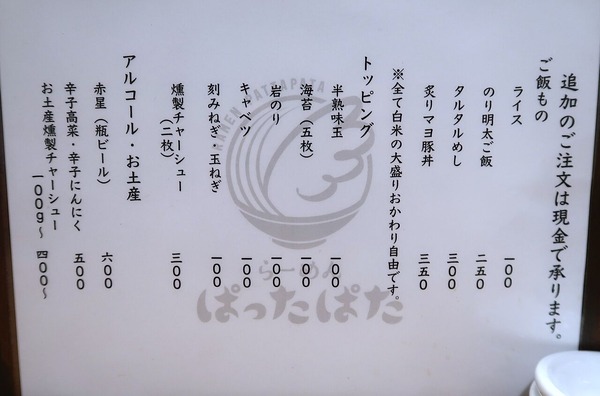 追加のご注文は現金で承ります。
ご飯もの
ライス 一〇〇
のり明太ご飯 二五〇
タルタルめし 三〇〇
炙りマヨ豚丼 三五〇
※全て白米の大盛りおかわり自由です。
トッピング
半熟味玉 一〇〇
海苔（五枚） 一〇〇
岩のり 一〇〇
キャベツ 一〇〇
刻みねぎ・玉ねぎ 一〇〇
燻製チャーシュー（二枚） 三〇〇
アルコール・お土産
赤星（瓶ビール） 六〇〇
辛子高菜・辛子にんにく 五〇〇
お土産燻製チャーシュー
一〇〇g〜 四〇〇〜
RAMEN PATTAPATA
らーめん
ぱったぱた